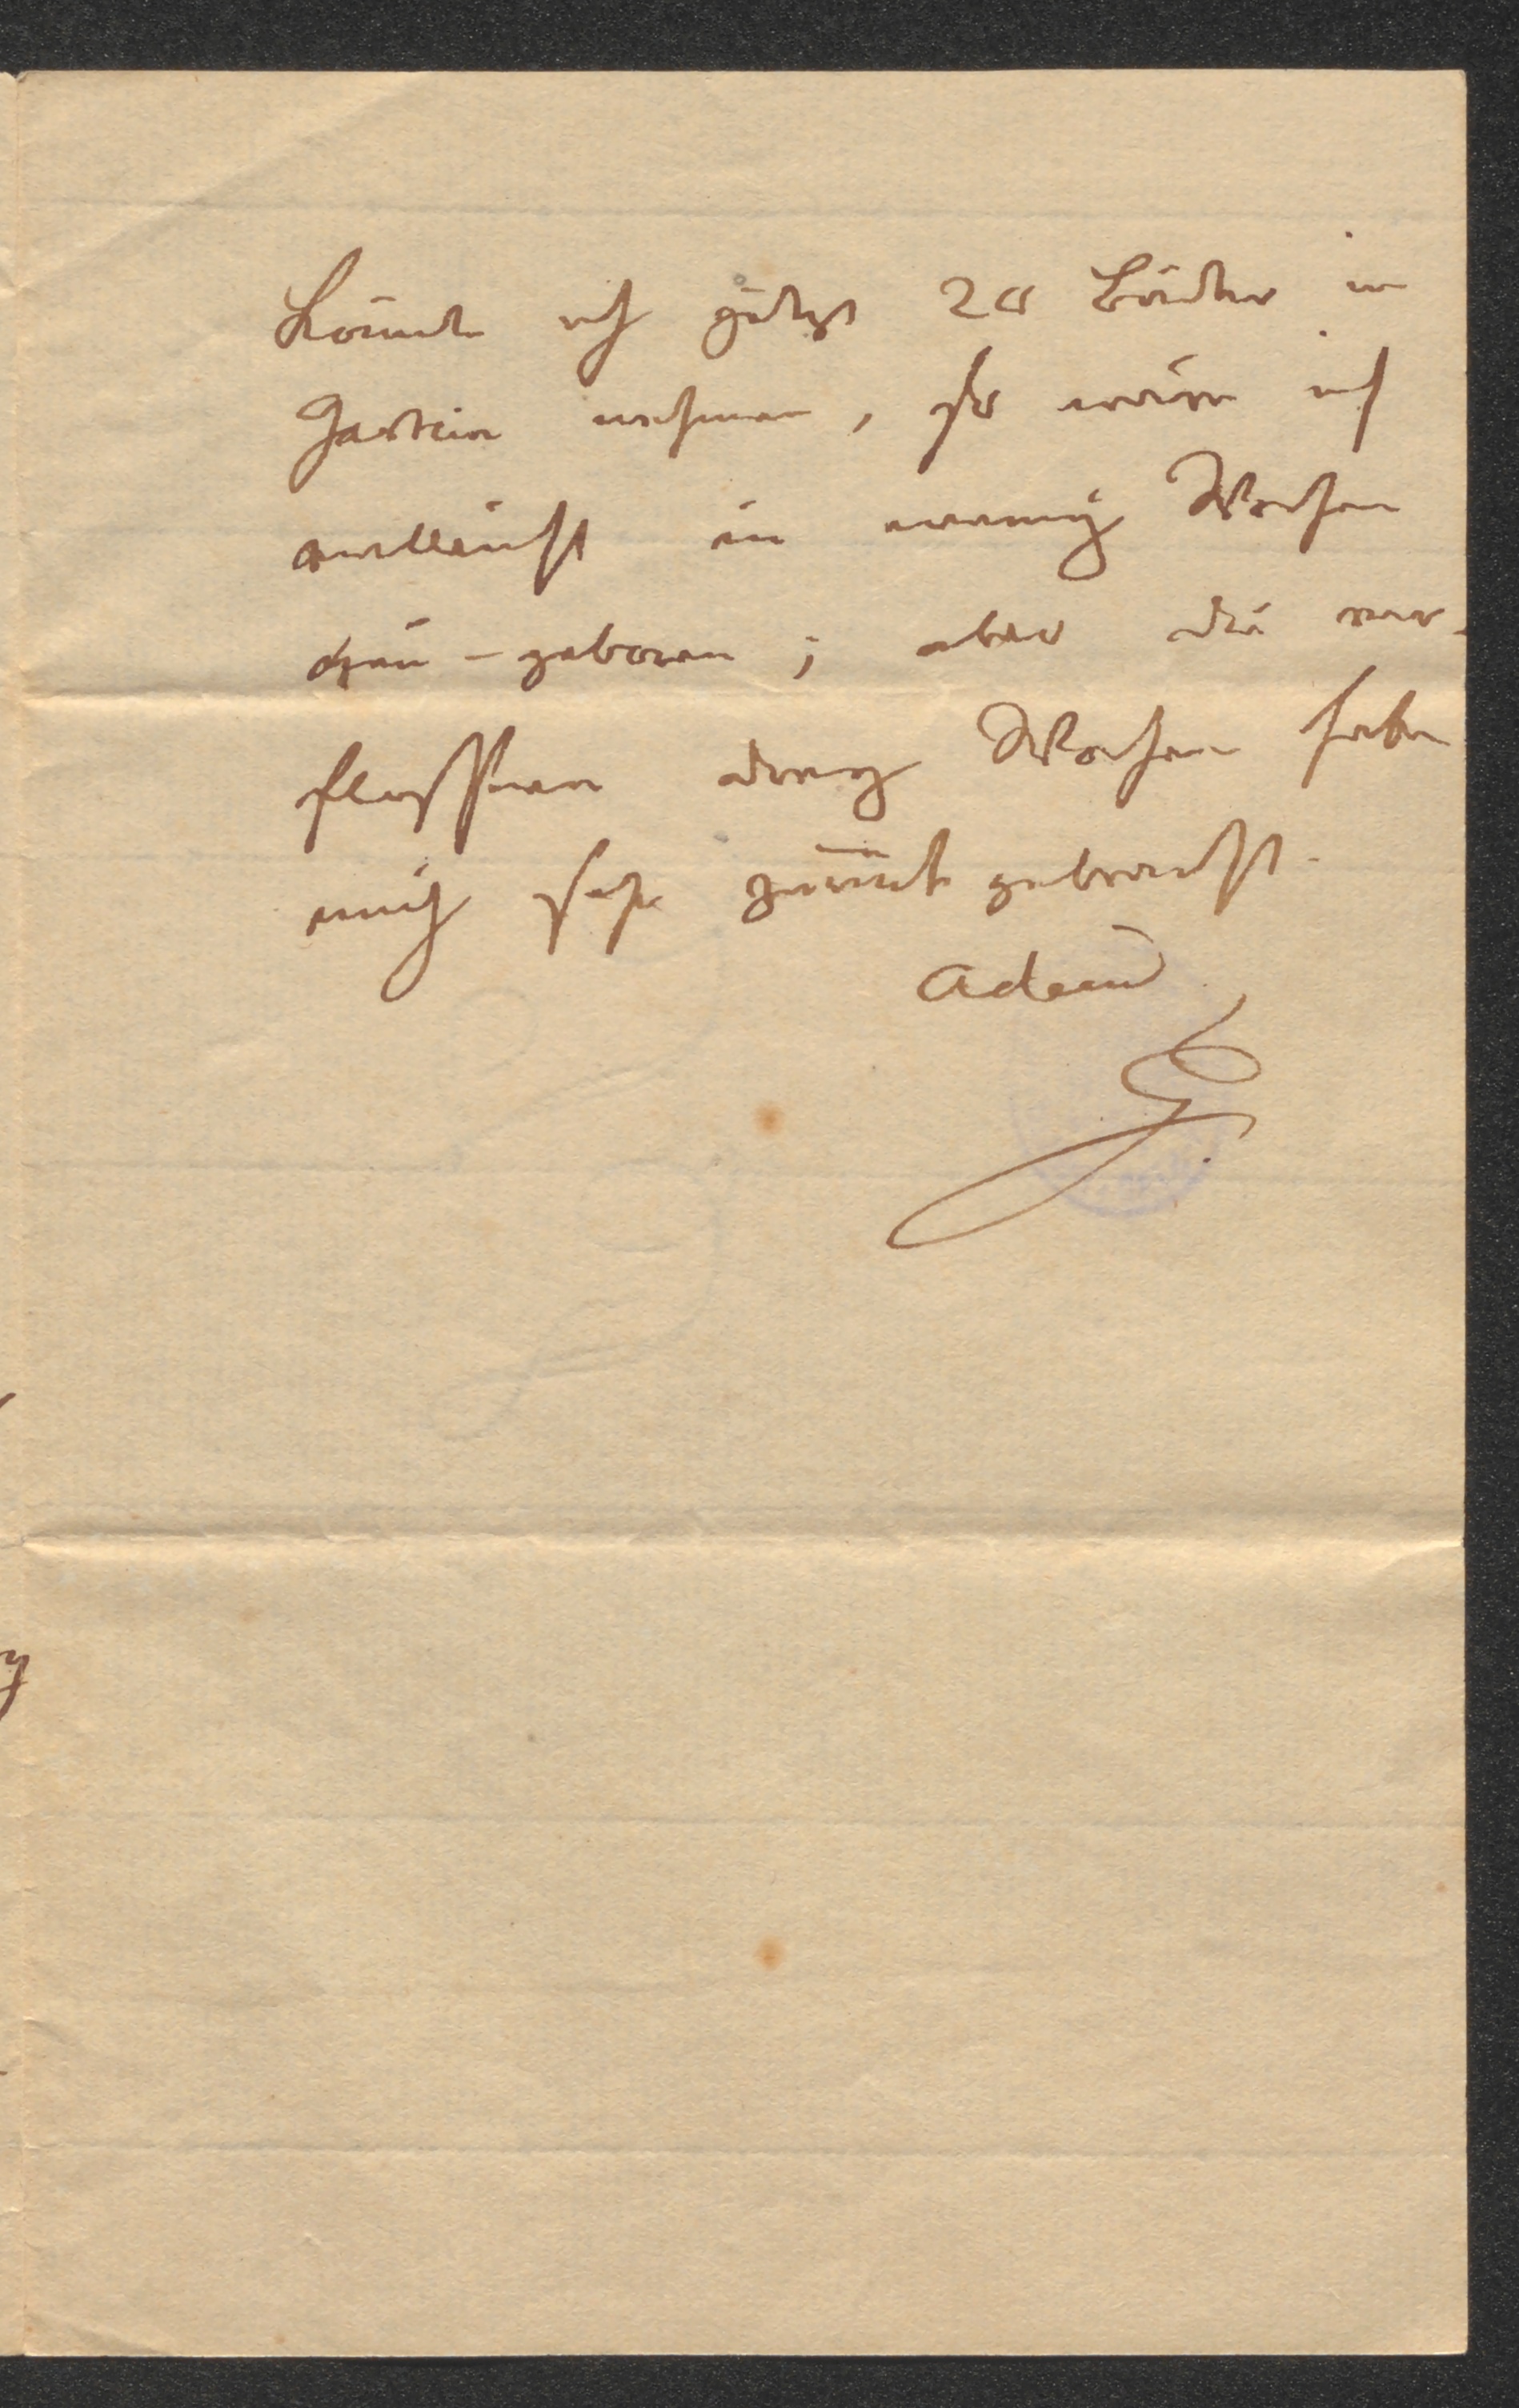 Könnte ich jetzt 20 Bäder in
Gastein nehmen, so wäre ich
vielleicht in wenig Wochen
neu-geboren; aber die ver-
flossenen drey Wochen haben
mich sehr zurück gebracht.
Adieu